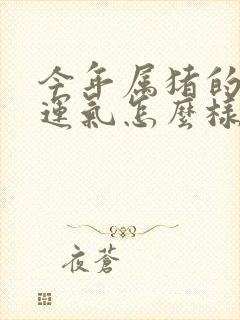 今年属猪的
運氣怎麼樣
夜蒼